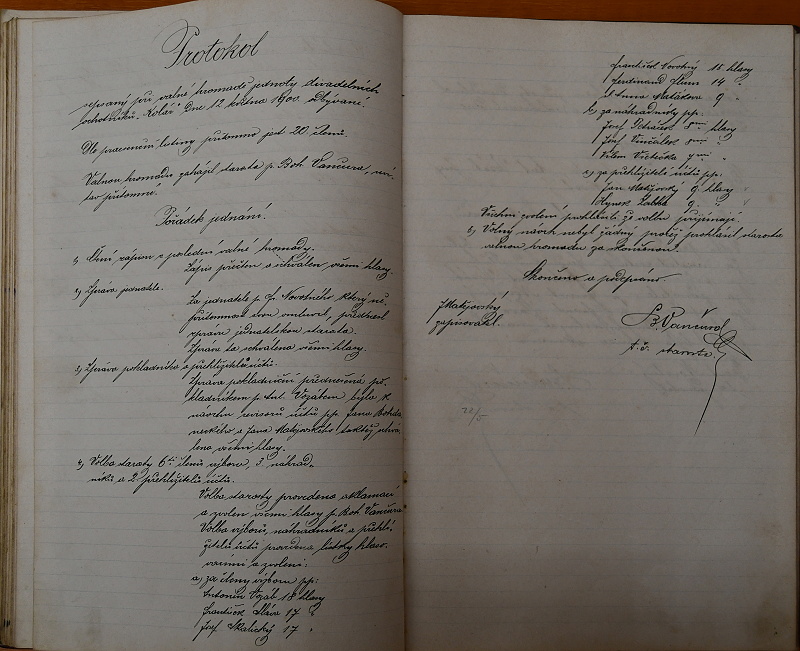 Protokol
sepsaný při valné hromadě jednoty divadelních
ochotníků „Kolár" dne 12 května 1900. odbývané.
Dle presenční listiny přítomno jest 20 členů.
Valnou hromadu zahájil starosta p. Boh. Vančura,
přítomné.
Pořádek jednání.
1) Čtení zápisu z poslední valné hromady.
Zápis přečten a schválen všemi hlasy.
2) Zpráva jednatele.
Za jednatele p. Fr. Novotného který ne-
přítomnost svou omluvil, přednesl
zprávu jednatelskou starosta.
Zpráva ta schválena všemi hlasy.
3) Zpráva pokladníka a přehlížitelů účtů.
Zpráva pokladniční přednešená po-
kladníkem p. Ant. Vozábem byla k
návrhu revisorů účtů pp. Jana Bohda-
neckého a Jana Matějovského taktéž schvá-
lena všemi hlasy.
4) Volba starosty 6ti členů výboru, 3 náhrad-
níků a 2 přehlížitelů účtů.
Volba starosty provedena aklamací
a zvolen všemi hlasy p. Boh. Vančura
Volba výborů, náhradníků a přehlí-
žitelů účtů provedena lístky hlaso-
vacími a zvoleni:
a) za členy výboru pp:
Antonín Vozáb 18 hlasy
František 17 "
Josef Skalický 17 "
František Novotný 15 hlasy
Ferdinand 14 "
sl. Anna 9 "
b) za náhradníky pp:
Josef Petráček 8mi hlasy
Josef 8mi "
Vilém "
c) za přehlížitele účtů pp:
Jan Matějovský 9 hlasy
Hynek 9 "
Všichni zvolení prohlásili že volbu přijímají.
5) Volný návrh nebyl žádný pročež prohlásil starosta
valnou hromadu za skončenou.
Skončeno a podepsáno.
J Matějovský
zapisovatel.
B. Vančura
t. č. starosta
22/5